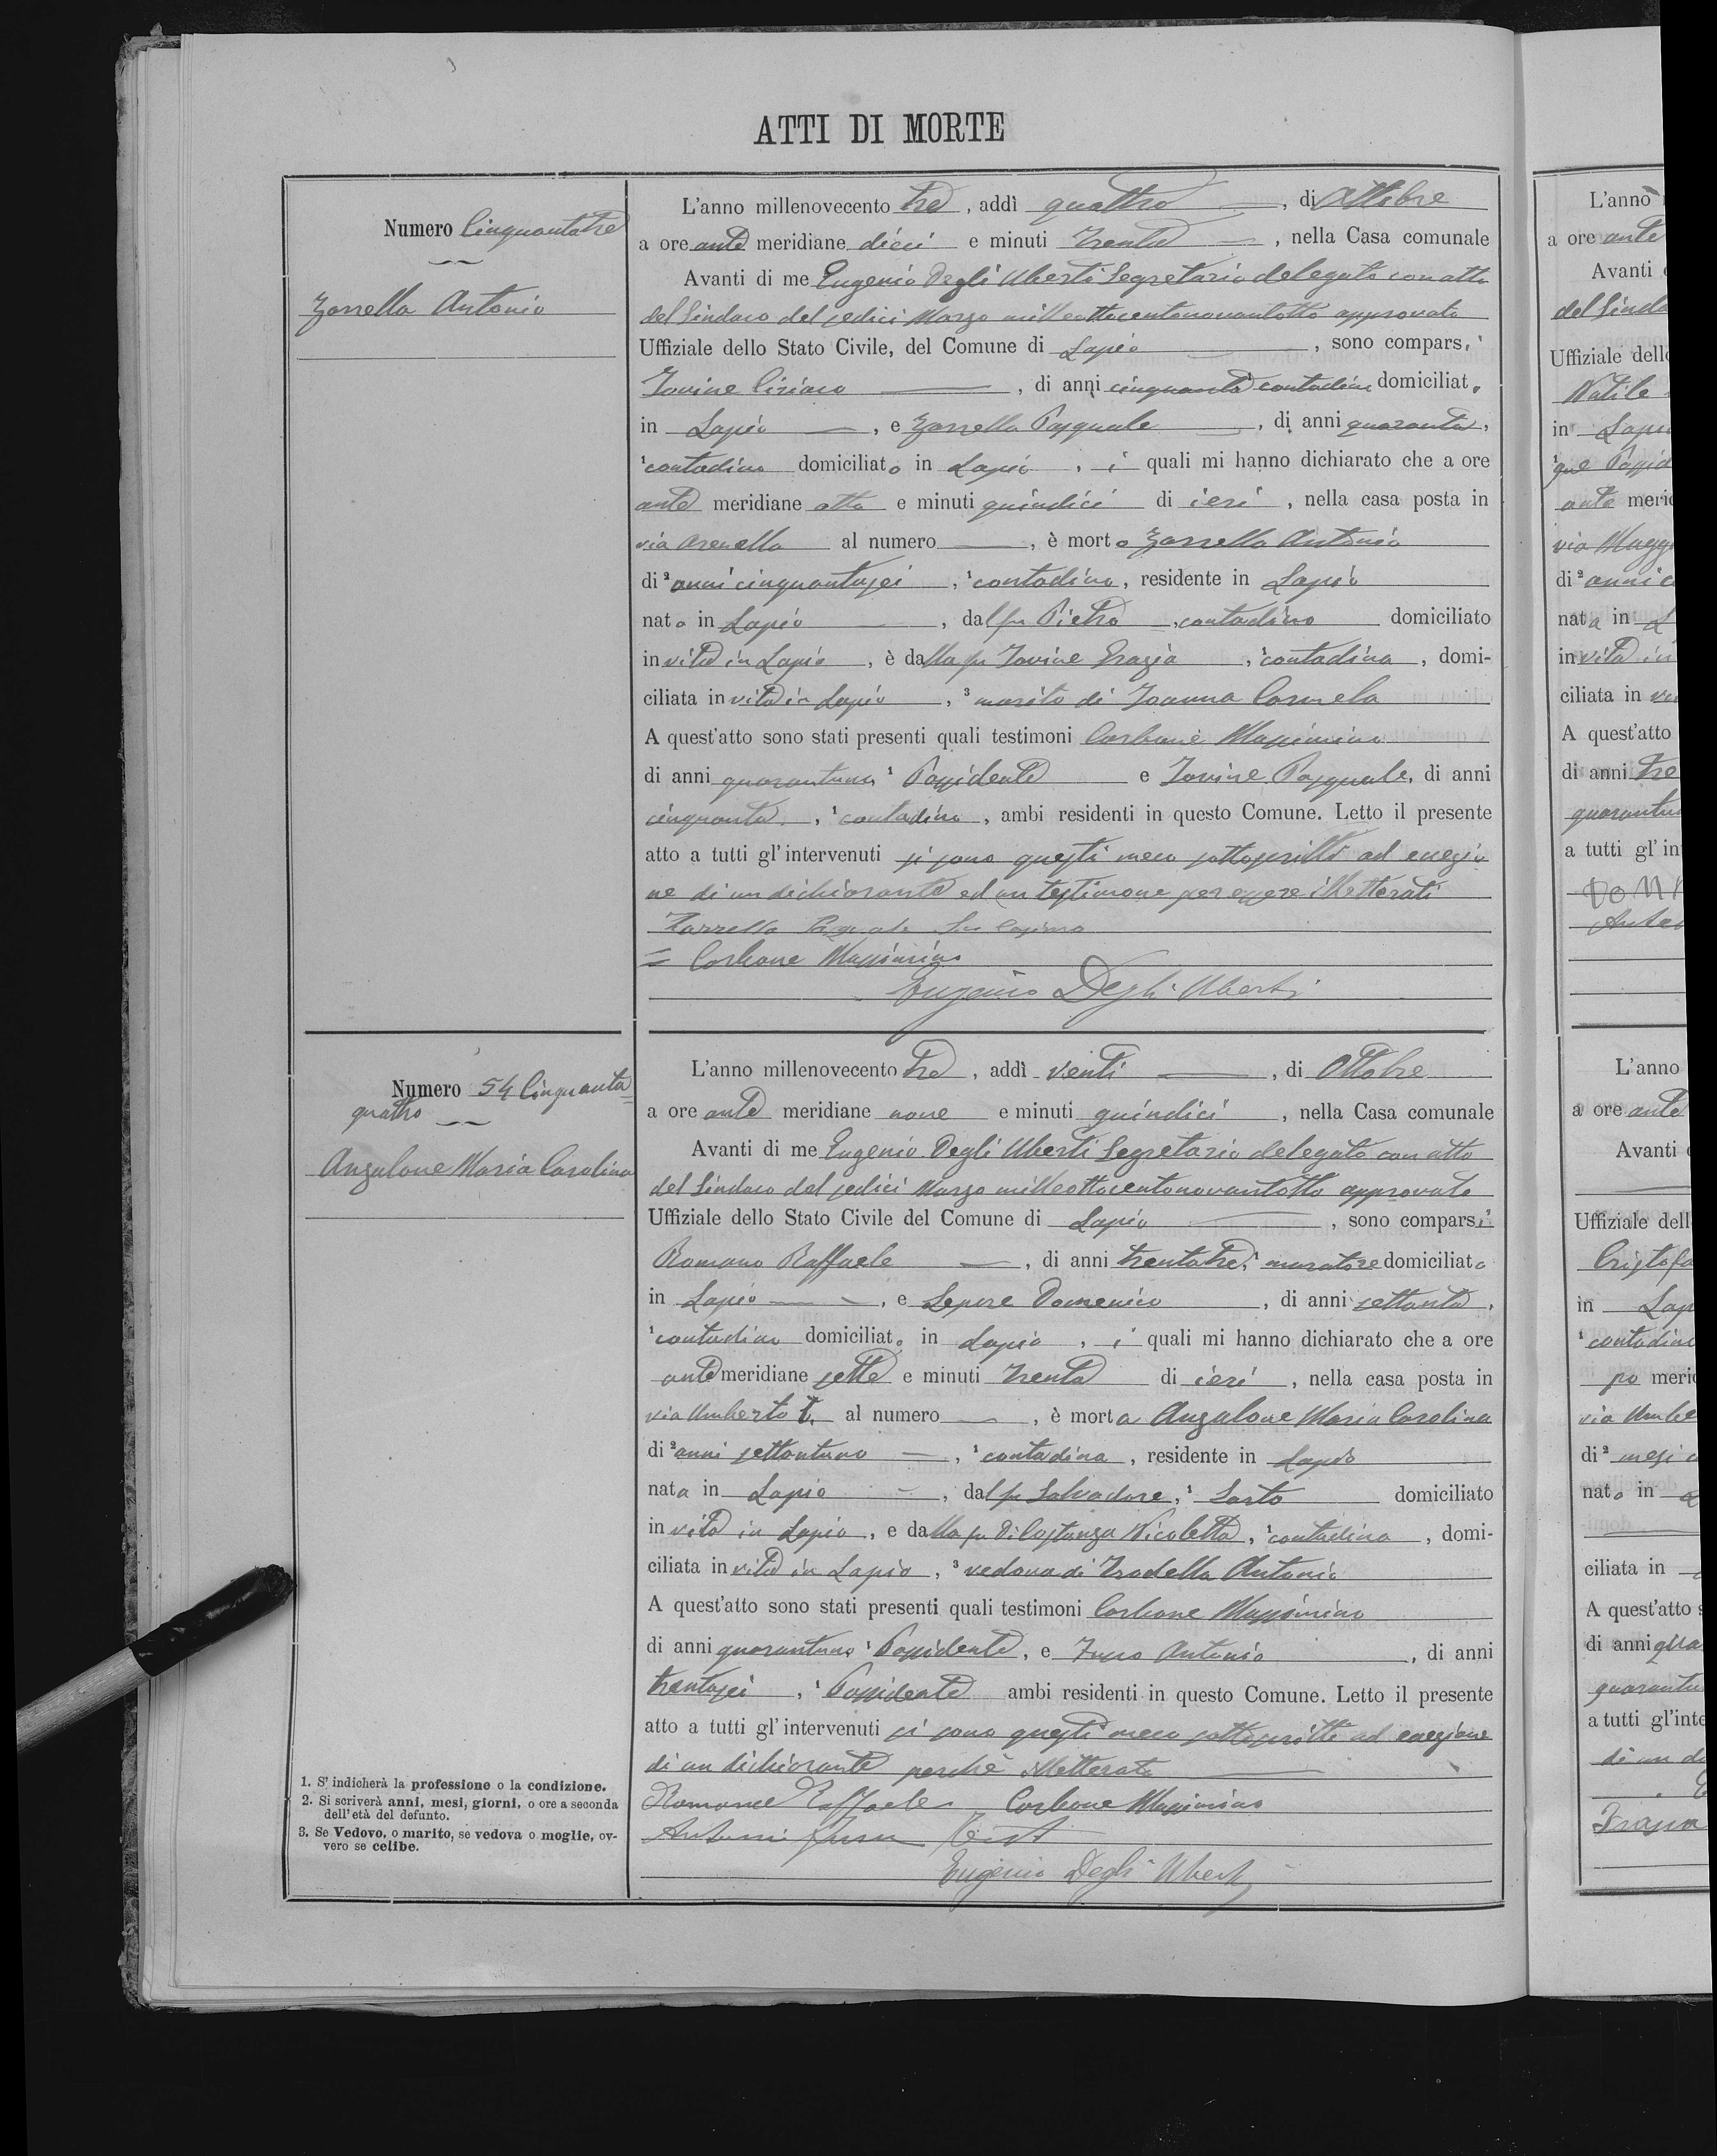 ATTI DI MORTE
Numero Cinquantatre
Zarrella Antonio
L'anno millenovecento tre, addì quattro, di Ottobre
a ore ante meridiane dieci e minuti trenta, nella Casa comunale
Avanti di me Eugenio Degli Uberti Segretario delegato con atto
del Sindaco del sedici Marzo milleottocentonovantotto approvato
Uffiziale dello Stato Civile, del Comune di Lapio, sono comparsi
Iovine Ciriaco, di anni cinquanta 1 contadino domiciliato
in Lapio, e Zarrella Pasquale, di anni quaranta,
1 contadino domiciliato in Lapio, i quali mi hanno dichiarato che a ore
ante meridiane otto e minuti quindici di ieri, nella casa posta in
via Arenella al numero —, è morto Zarrella Antonio
di 2 anni cinquantasei, 1 contadino, residente in Lapio
nato in Lapio, dal fu Pietro, contadino domiciliato
in vita in Lapio, è dalla fu Iovine Grazia, 1 contadina, domi-
ciliata in vita in Lapio, 3 marito di Ioanna Carmela
A quest'atto sono stati presenti quali testimoni Carbone Massimino
di anni quarantuno 1 Possidente e Iovine Pasquale, di anni
cinquanta, 1 contadino, ambi residenti in questo Comune. Letto il presente
atto a tutti gl'intervenuti si sono questi meco sottoscritti ad eccezio
ne di un dichiarante ed un testimone per essere illetterati
Zarrella Pasquale
= Carbone Massimino
Eugenio Degli Uberti
Numero 54 Cinquanta=
quattro
Angalone Maria Carolina
L'anno millenovecento tre, addì venti, di Ottobre
a ore ante meridiane nove e minuti quindici, nella Casa comunale
Avanti di me Eugenio Degli Uberti Segretario delegato con atto
del Sindaco del sedici Marzo milleottocentonovantotto approvato
Uffiziale dello Stato Civile del Comune di Lapio, sono comparsi
Romano Raffaele, di anni trentatre, 1 muratore domiciliato
in Lapio, e Lepore Domenico, di anni settanta,
1 contadino domiciliato in Lapio, i quali mi hanno dichiarato che a ore
ante meridiane sette e minuti trenta di ieri, nella casa posta in
via Umberto I. al numero —, è morta Angalone Maria Carolina
di 2 anni settantuno, 1 contadina, residente in Lapio
nata in Lapio, dal fu Salvadore, 1 Sarto domiciliato
in vita in Lapio, e dalla fu Di Costanza Nicoletta, 1 contadina, domi-
ciliata in vita in Lapio, 3 vedova di Trodella Antonio
A quest'atto sono stati presenti quali testimoni Carbone Massimino
di anni quarantuno 1 Possidente, e Iuso Antonio, di anni
trentasei, 1 Possidente ambi residenti in questo Comune. Letto il presente
atto a tutti gl'intervenuti si sono questi meco sottoscritti ad eccezione
di un dichiarante perchè illetterato
Romano Raffaele Carbone Massimino
Antonio Iuso Test
Eugenio Degli Uberti
1. S'indicherà la professione o la condizione.
2. Si scriverà anni, mesi, giorni, o ore a seconda
dell'età del defunto.
3. Se Vedovo, o marito, se vedova o moglie, ov-
vero se celibe.
L'anno
a ore ante
Avanti
del Sinda
Uffiziale dello
Natile
in Lapio
ante meri
via Magg
di 2 anni
nata in L
in vita in
ciliata in
A quest'atto
di anni tre
quarantu
a tutti gl'in
L'anno
a ore ante
Avanti
Uffiziale dell
Cristofa
in Lap
1 contadino
po meri
via Umbe
di 2 mesi
nato in
ciliata in
A quest'atto
di anni qua
quarantu
a tutti gl'inte
di un di